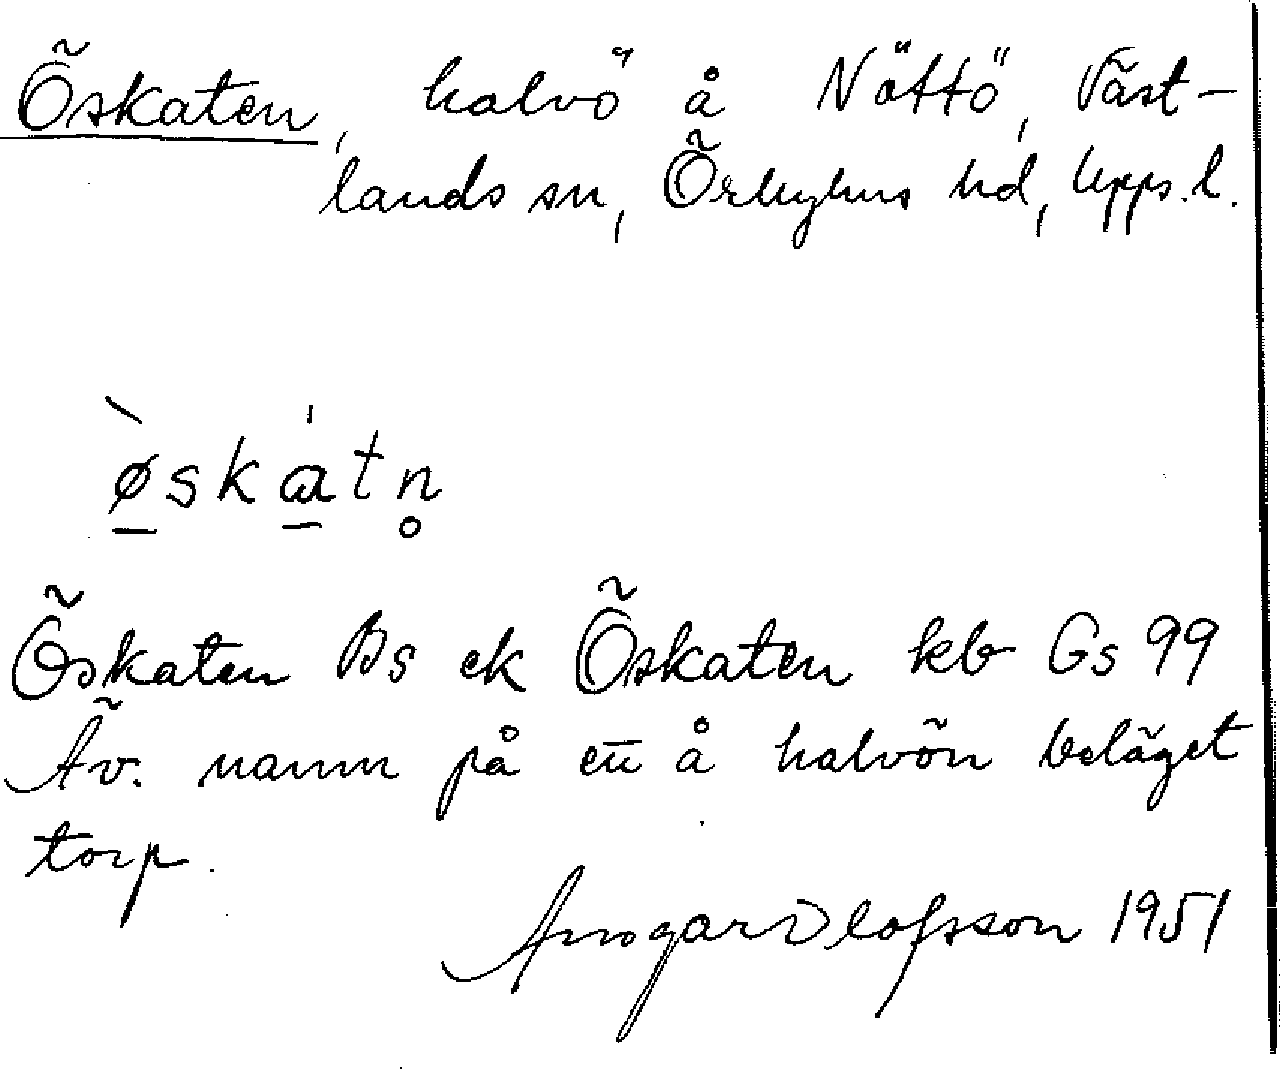 Öskaten, halvö å Nöttö, Väst-
lands sn, Örbyhus hd, Upps. l.
ø̀skɑ́tn̥
Öskaten Bs ek Öskaten kb Gs 99
Äv. namn på en̄ å halvön beläget
torp.
Ansgar Olofsson 1951